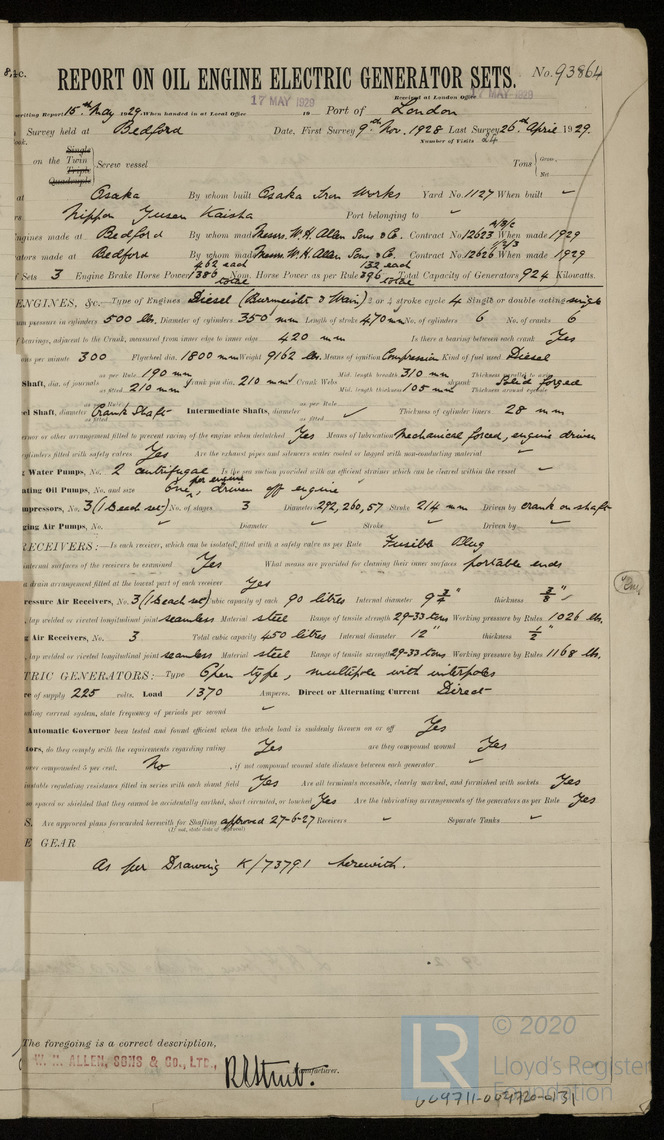 8, &c.
REPORT ON OIL ENGINE ELECTRIC GENERATOR SETS. No. 93864
Received at London Office 17 MAY 1929
writing Report 15th May 1929 When handed in at Local Office 17 MAY 1929 19 Port of London
Survey held at Bedford Date, First Survey 9th Nov. 1928 Last Survey 26th April 1929.
Number of Visits 24
on the Single Twin Triple Quadruple Screw vessel Tons Gross Net
at Osaka By whom built Osaka Iron Works Yard No. 1127 When built ✓
Nippon Yusen Kaisha Port belonging to ✓
Engines made at Bedford By whom made Messrs. W. H. Allen Sons & Co. Contract No. 12623 When made 1929
ators made at Bedford By whom made Messrs W. H. Allen Sons & Co. Contract No. 12626 When made 1929
of Sets 3 Engine Brake Horse Power 462 each 1386 total Nom. Horse Power as per Rule 132 each 396 total Total Capacity of Generators 924 Kilowatts.
ENGINES, &c. Type of Engines Diesel (Burmeister & Wain) 2 or 4 stroke cycle 4 Single or double acting single
um pressure in cylinders 500 lbs. Diameter of cylinders 350 mm Length of stroke 470 mm No. of cylinders 6 No. of cranks 6
f bearings, adjacent to the Crank, measured from inner edge to inner edge 420 mm Is there a bearing between each crank Yes
ons per minute 300 Flywheel dia. 1800 mm Weight 9162 lbs. Means of ignition Compression Kind of fuel used Diesel
Shaft, dia. of journals as per Rule 190 mm as fitted 210 mm Crank pin dia. 210 mm Crank Webs Mid. length breadth 310 mm Mid. length thickness 105 mm shrunk Thickness parallel to axis Thickness around eyehole Solid forged
el Shaft, diameter as per Rule as fitted Crank Shaft Intermediate Shafts, diameter as per Rule as fitted ✓ Thickness of cylinder liners 28 mm
ernor or other arrangement fitted to prevent racing of the engine when declutched Yes Means of lubrication Mechanical forced, engine driven
cylinders fitted with safety valves Yes Are the exhaust pipes and silencers water cooled or lagged with non-conducting material ✓
g Water Pumps, No. 2 centrifugal Is the sea suction provided with an efficient strainer which can be cleared within the vessel ✓
ating Oil Pumps, No. and size One, per engine driven off engine
ompressors, No. 3 (1 each set) No. of stages 3 Diameters 292, 260, 57 Stroke 214 mm Driven by crank on shaft
ging Air Pumps, No. ✓ Diameter ✓ Stroke ✓ Driven by ✓
RECEIVERS:—Is each receiver, which can be isolated, fitted with a safety valve as per Rule Fusible Plug
internal surfaces of the receivers be examined Yes What means are provided for cleaning their inner surfaces portable ends
a drain arrangement fitted at the lowest part of each receiver Yes
ressure Air Receivers, No. 3 (1 each set) Cubic capacity of each 90 litres Internal diameter 9 3/4" thickness 3/8"
, lap welded or riveted longitudinal joint seamless Material steel Range of tensile strength 29-33 tons Working pressure by Rules 1026 lbs.
g Air Receivers, No. 3 Total cubic capacity 450 litres Internal diameter 12" thickness 1/2"
, lap welded or riveted longitudinal joint seamless Material steel Range of tensile strength 29-33 tons Working pressure by Rules 1168 lbs.
TRIC GENERATORS:— Type Open type, multipole with interpoles
re of supply 225 volts. Load 1370 Amperes. Direct or Alternating Current Direct
ating current system, state frequency of periods per second ✓
Automatic Governor been tested and found efficient when the whole load is suddenly thrown on or off Yes
tors, do they comply with the requirements regarding rating Yes are they compound wound Yes
over compounded 5 per cent. No , if not compound wound state distance between each generator ✓
justable regulating resistance fitted in series with each shunt field Yes Are all terminals accessible, clearly marked, and furnished with sockets Yes
so spaced or shielded that they cannot be accidentally earthed, short circuited, or touched Yes Are the lubricating arrangements of the generators as per Rule Yes
S. Are approved plans forwarded herewith for Shafting approved 27-6-27 Receivers ✓ Separate Tanks ✓
(If not, state date of approval)
E GEAR
As per Drawing K/73791 herewith.
The foregoing is a correct description,
W. H. ALLEN, SONS & Co., LTD., Manufacturer.
LR © 2020
Lloyd's Register
Foundation
004711-004720-0131